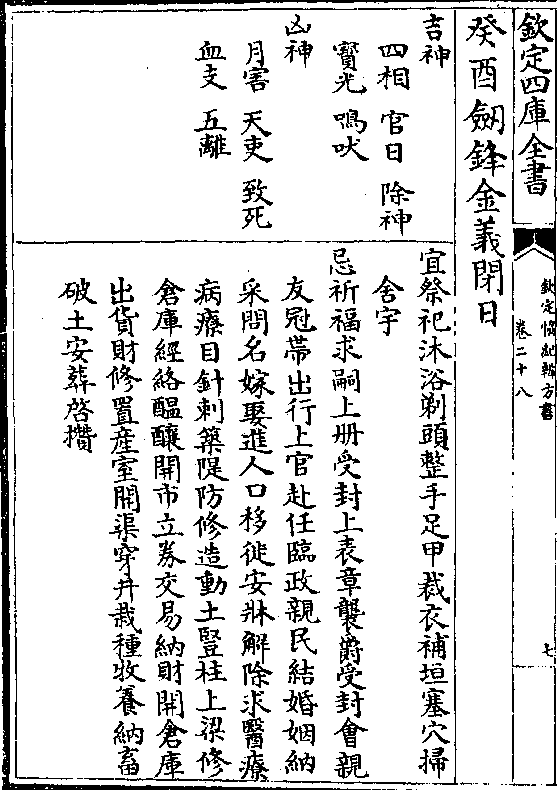 欽定四庫全書
欽定協紀辨方書
卷二十八
七
癸酉劒鋒金義閉日
吉神
四相 官日 除神
寳光 鳴吠
凶神
月害 天吏 致死
血支 五離
宜祭祀沐浴剃頭整手足甲裁衣補垣塞穴掃
舍宇
忌祈福求嗣上册受封上表章襲爵受封會親
友冠帶出行上官赴任臨政親民結婚姻納
采問名嫁娶進人口移徙安牀解除求醫療
病療目針刺築隄防修造動土豎柱上梁修
倉庫經絡醖釀開市立券交易納財開倉庫
出貨財修置産室開渠穿井栽種牧養納畜
破土安葬啓攢